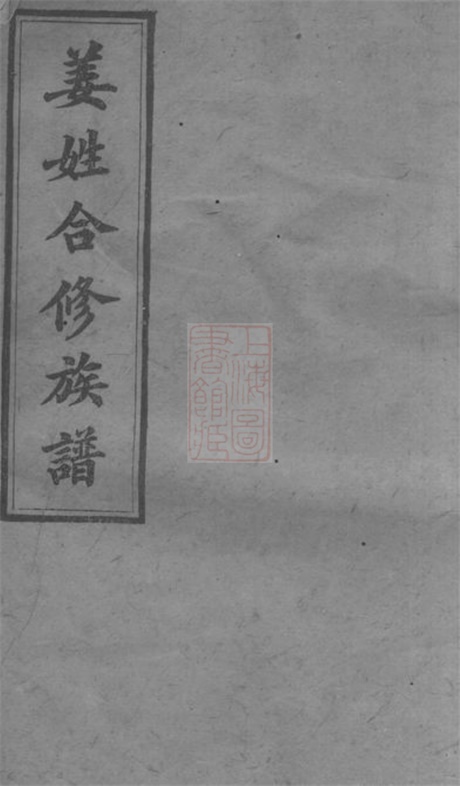 姜姓合修族譜
上海圖
書館藏